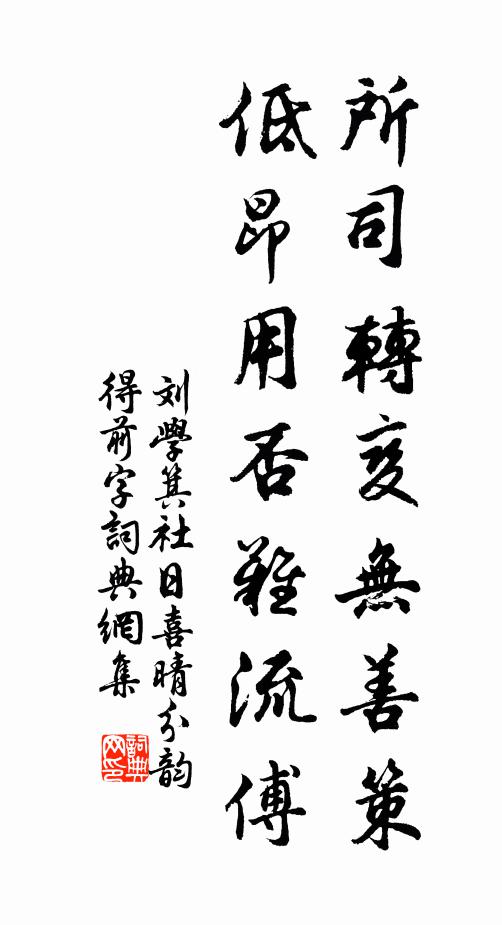 所司轉变無善策
低昂用否難流傅
刘學箕社日喜晴分韵
得前字詞典網集
詞典
网印